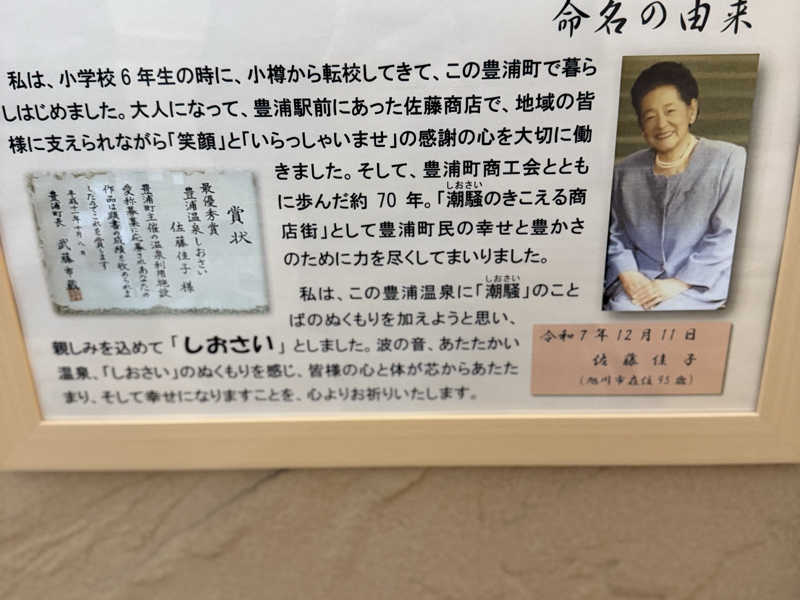 命名の由来
私は、小学校6年生の時に、小樽から転校してきて、この豊浦町で暮ら
しはじめました。大人になって、豊浦駅前にあった佐藤商店で、地域の皆
様に支えられながら「笑顔」と「いらっしゃいませ」の感謝の心を大切に働
きました。そして、豊浦町商工会ととも
に歩んだ約 70 年。「潮騒のきこえる商
しおさい
店街」として豊浦町民の幸せと豊かさ
のために力を尽くしてまいりました。
私は、この豊浦温泉に「潮騒」のこと
しおさい
ばのぬくもりを加えようと思い、
親しみを込めて「しおさい」としました。波の音、あたたかい
温泉、「しおさい」のぬくもりを感じ、皆様の心と体が芯からあたた
まり、そして幸せになりますことを、心よりお祈りいたします。
賞状
最優秀賞
豊浦温泉しおさい
佐藤佳子 様
豊浦町主催の温泉利用施設
愛称募集に応募されあなたの
作品は頭書の成績を収められま
したのでこれを賞します
平成十一年十月八日
豊浦町長 武藤市蔵
令和7年12月11日
佐藤佳子
(旭川市在住95歳)